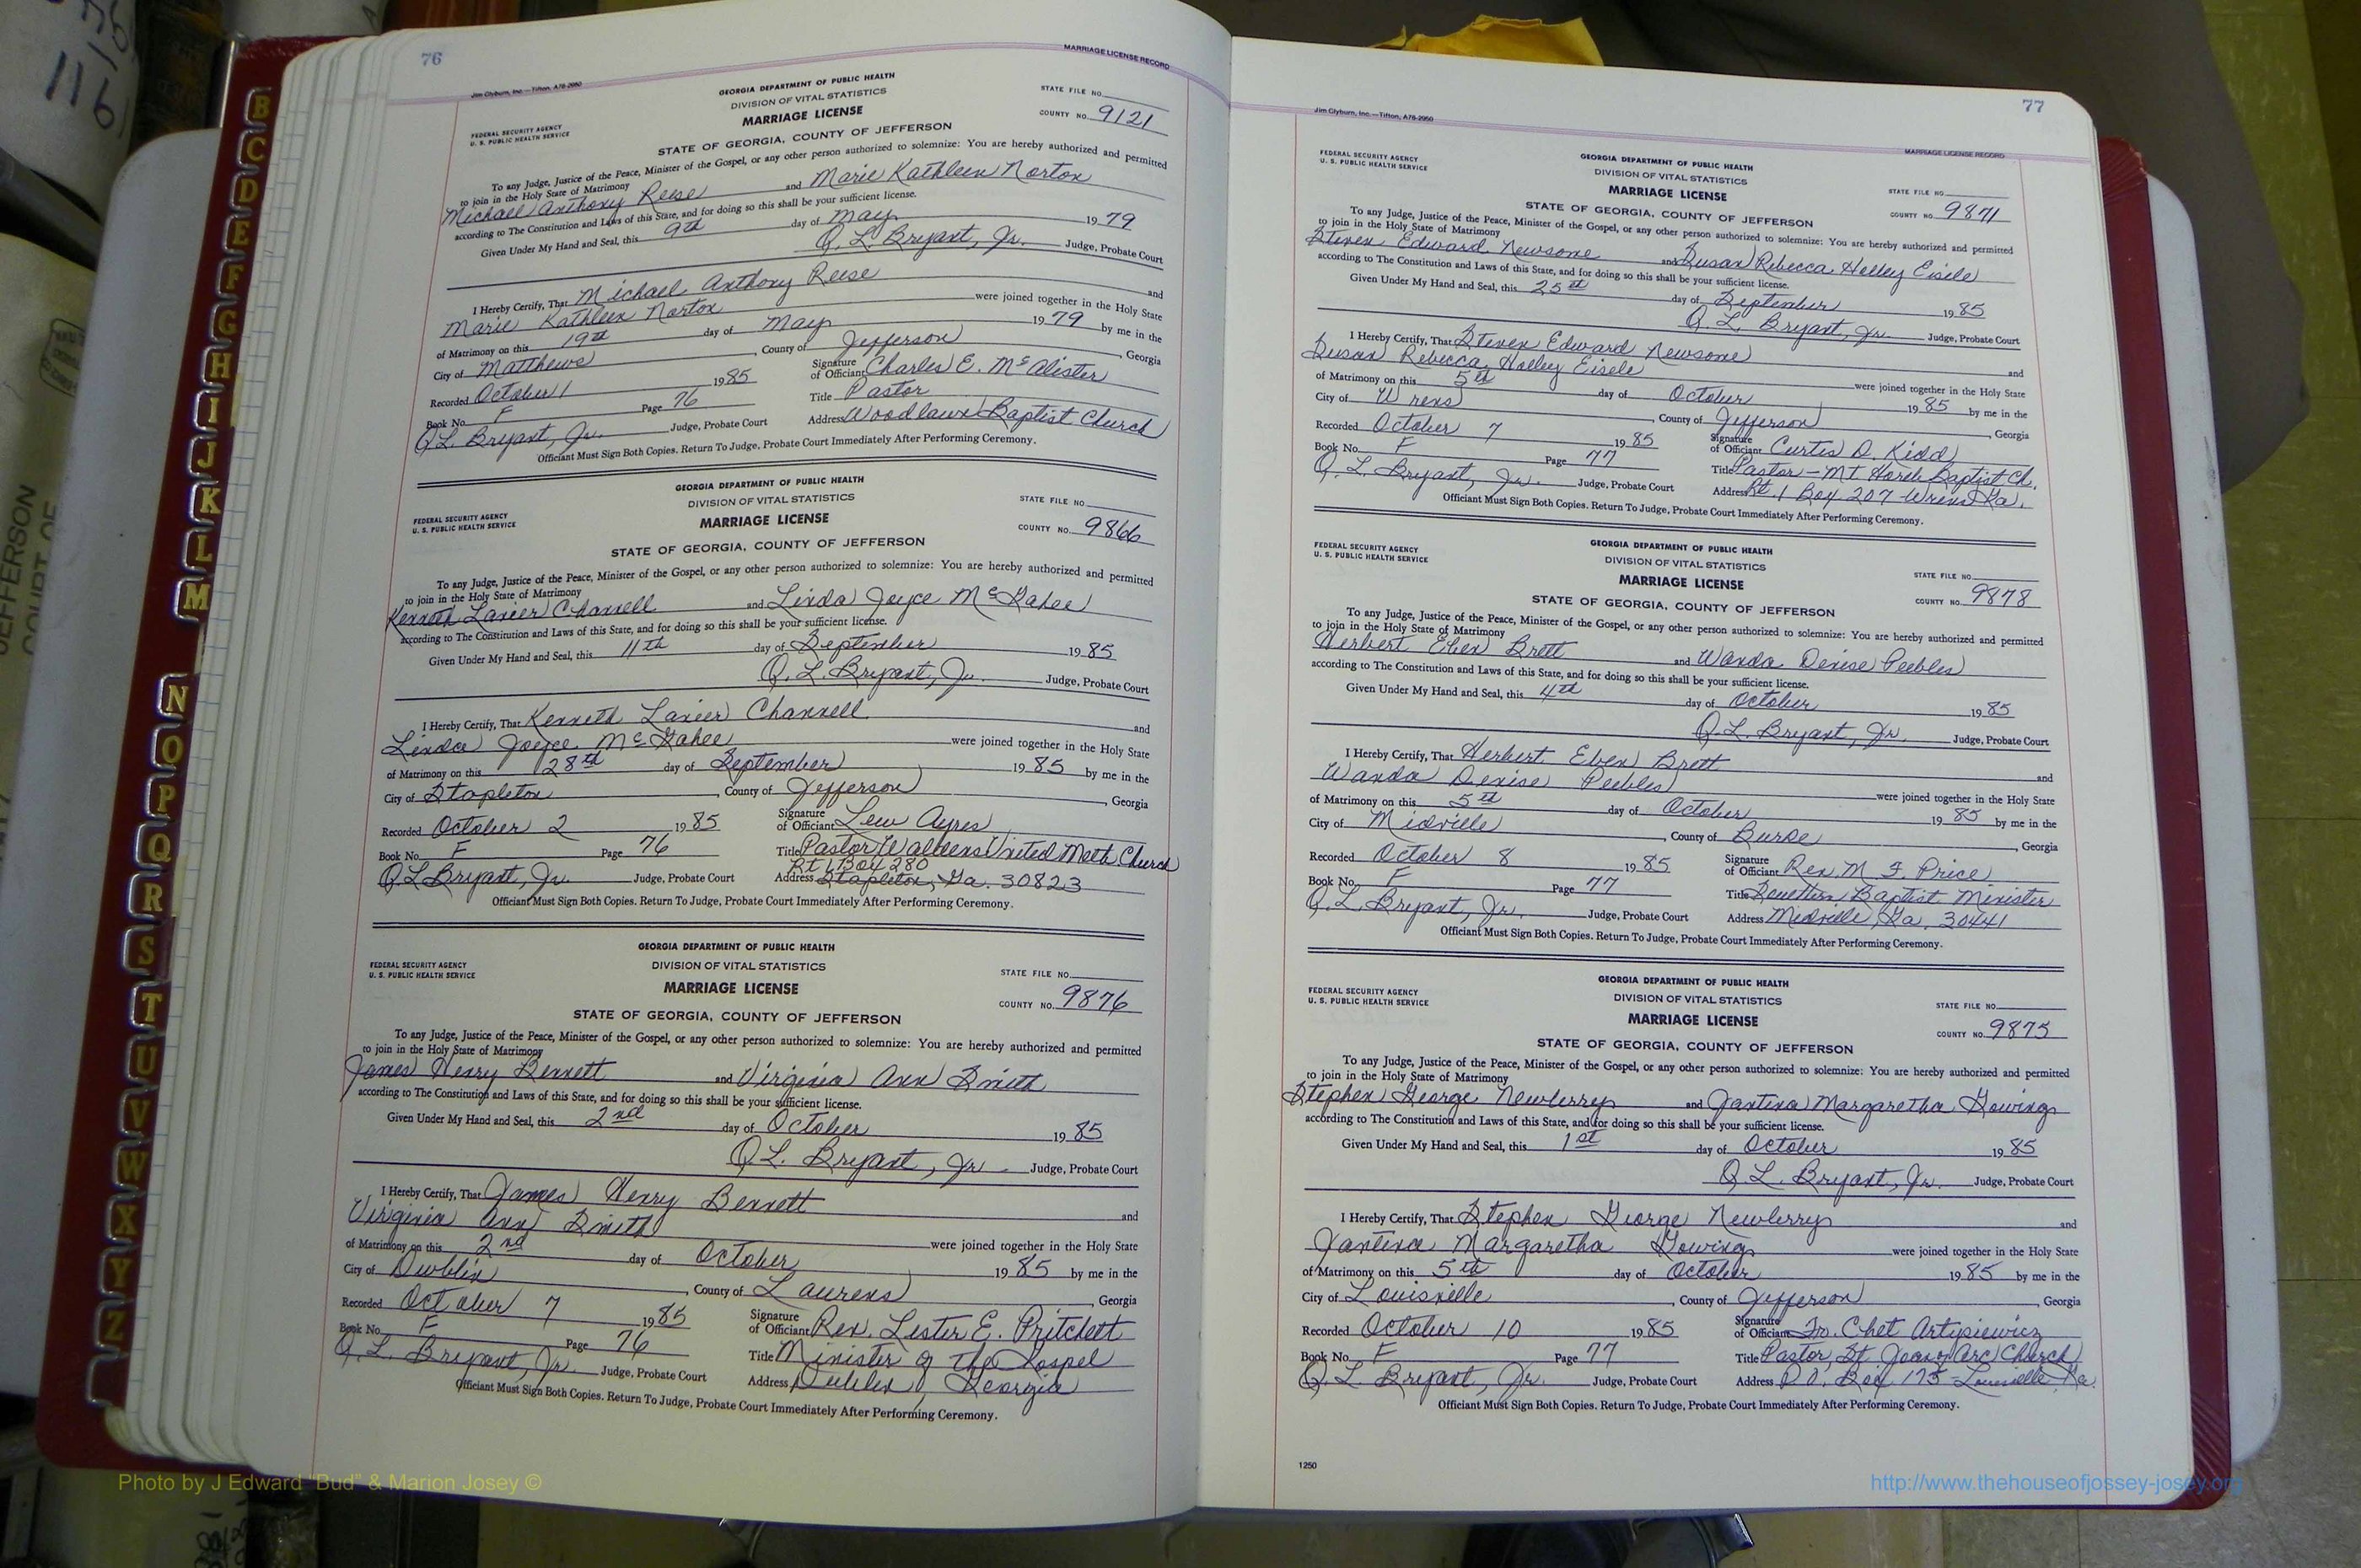 76
Jim Clyburn, Inc.—Tifton, A78-2950
MARRIAGE LICENSE RECORD
GEORGIA DEPARTMENT OF PUBLIC HEALTH
DIVISION OF VITAL STATISTICS
MARRIAGE LICENSE
FEDERAL SECURITY AGENCY
U. S. PUBLIC HEALTH SERVICE
STATE FILE NO.
COUNTY NO. 9121
STATE OF GEORGIA, COUNTY OF JEFFERSON
To any Judge, Justice of the Peace, Minister of the Gospel, or any other person authorized to solemnize: You are hereby authorized and permitted
to join in the Holy State of Matrimony
Michael Anthony Reese and Marie Kathleen Norton
according to The Constitution and Laws of this State, and for doing so this shall be your sufficient license.
Given Under My Hand and Seal, this 9th day of May 1979
Q. L. Bryant, Jr. Judge, Probate Court
I Hereby Certify, That Michael Anthony Reese and
Marie Kathleen Norton were joined together in the Holy State
of Matrimony on this 19th day of May 1979 by me in the
City of Matthews, County of Jefferson, Georgia
Recorded October 1 1985
Signature of Officiant Charles E. McAlister
Book No. F Page 76
Title Pastor
Q L Bryant, Jr. Judge, Probate Court
Address Woodlawn Baptist Church
Officiant Must Sign Both Copies. Return To Judge, Probate Court Immediately After Performing Ceremony.
GEORGIA DEPARTMENT OF PUBLIC HEALTH
DIVISION OF VITAL STATISTICS
MARRIAGE LICENSE
FEDERAL SECURITY AGENCY
U. S. PUBLIC HEALTH SERVICE
STATE FILE NO.
COUNTY NO. 9866
STATE OF GEORGIA, COUNTY OF JEFFERSON
To any Judge, Justice of the Peace, Minister of the Gospel, or any other person authorized to solemnize: You are hereby authorized and permitted
to join in the Holy State of Matrimony
Kenneth Lanier Channell and Linda Joyce McGahee
according to The Constitution and Laws of this State, and for doing so this shall be your sufficient license.
Given Under My Hand and Seal, this 11th day of September 1985
Q. L. Bryant, Jr. Judge, Probate Court
I Hereby Certify, That Kenneth Lanier Channell and
Linda Joyce McGahee were joined together in the Holy State
of Matrimony on this 28th day of September 1985 by me in the
City of Stapleton, County of Jefferson, Georgia
Recorded October 2 1985
Signature of Officiant Lew Ayres
Book No. F Page 76
Title Pastor Waldens United Meth Church
Rt 1 Box 280
Q L Bryant, Jr. Judge, Probate Court
Address Stapleton, Ga. 30823
Officiant Must Sign Both Copies. Return To Judge, Probate Court Immediately After Performing Ceremony.
GEORGIA DEPARTMENT OF PUBLIC HEALTH
DIVISION OF VITAL STATISTICS
MARRIAGE LICENSE
FEDERAL SECURITY AGENCY
U. S. PUBLIC HEALTH SERVICE
STATE FILE NO.
COUNTY NO. 9876
STATE OF GEORGIA, COUNTY OF JEFFERSON
To any Judge, Justice of the Peace, Minister of the Gospel, or any other person authorized to solemnize: You are hereby authorized and permitted
to join in the Holy State of Matrimony
James Henry Bennett and Virginia Ann Smith
according to The Constitution and Laws of this State, and for doing so this shall be your sufficient license.
Given Under My Hand and Seal, this 2nd day of October 1985
Q. L. Bryant, Jr. Judge, Probate Court
I Hereby Certify, That James Henry Bennett and
Virginia Ann Smith were joined together in the Holy State
of Matrimony on this 2nd day of October 1985 by me in the
City of Dublin, County of Laurens, Georgia
Recorded October 7 1985
Signature of Officiant Rev. Lester E. Pritchett
Book No. F Page 76
Title Minister of the Gospel
Q. L. Bryant, Jr. Judge, Probate Court
Address Dublin, Georgia
Officiant Must Sign Both Copies. Return To Judge, Probate Court Immediately After Performing Ceremony.
77
Jim Clyburn, Inc.—Tifton, A78-2950
MARRIAGE LICENSE RECORD
FEDERAL SECURITY AGENCY
U. S. PUBLIC HEALTH SERVICE
GEORGIA DEPARTMENT OF PUBLIC HEALTH
DIVISION OF VITAL STATISTICS
MARRIAGE LICENSE
STATE FILE NO.
COUNTY NO. 9871
STATE OF GEORGIA, COUNTY OF JEFFERSON
To any Judge, Justice of the Peace, Minister of the Gospel, or any other person authorized to solemnize: You are hereby authorized and permitted
to join in the Holy State of Matrimony
Steven Edward Newsome and Susan Rebecca Holley Eisele
according to The Constitution and Laws of this State, and for doing so this shall be your sufficient license.
Given Under My Hand and Seal, this 25th day of September 1985
Q. L. Bryant, Jr. Judge, Probate Court
I Hereby Certify, That Steven Edward Newsome and
Susan Rebecca Holley Eisele were joined together in the Holy State
of Matrimony on this 5th day of October 1985 by me in the
City of Wrens, County of Jefferson, Georgia
Recorded October 7 1985
Signature of Officiant Curtis D. Kidd
Book No. F Page 77
Title Pastor - Mt Horeb Baptist Ch.
Q. L. Bryant, Jr. Judge, Probate Court
Address Rt. 1 Box 207 Wrens Ga.
Officiant Must Sign Both Copies. Return To Judge, Probate Court Immediately After Performing Ceremony.
FEDERAL SECURITY AGENCY
U. S. PUBLIC HEALTH SERVICE
GEORGIA DEPARTMENT OF PUBLIC HEALTH
DIVISION OF VITAL STATISTICS
MARRIAGE LICENSE
STATE FILE NO.
COUNTY NO. 9878
STATE OF GEORGIA, COUNTY OF JEFFERSON
To any Judge, Justice of the Peace, Minister of the Gospel, or any other person authorized to solemnize: You are hereby authorized and permitted
to join in the Holy State of Matrimony
Herbert Eben Brett and Wanda Denise Peebles
according to The Constitution and Laws of this State, and for doing so this shall be your sufficient license.
Given Under My Hand and Seal, this 4th day of October 1985
Q. L. Bryant, Jr. Judge, Probate Court
I Hereby Certify, That Herbert Eben Brett and
Wanda Denise Peebles were joined together in the Holy State
of Matrimony on this 5th day of October 1985 by me in the
City of Midville, County of Burke, Georgia
Recorded October 8 1985
Signature of Officiant Rev. M. F. Price
Book No. F Page 77
Title Southern Baptist Minister
Q. L. Bryant, Jr. Judge, Probate Court
Address Midville, Ga. 30441
Officiant Must Sign Both Copies. Return To Judge, Probate Court Immediately After Performing Ceremony.
FEDERAL SECURITY AGENCY
U. S. PUBLIC HEALTH SERVICE
GEORGIA DEPARTMENT OF PUBLIC HEALTH
DIVISION OF VITAL STATISTICS
MARRIAGE LICENSE
STATE FILE NO.
COUNTY NO. 9875
STATE OF GEORGIA, COUNTY OF JEFFERSON
To any Judge, Justice of the Peace, Minister of the Gospel, or any other person authorized to solemnize: You are hereby authorized and permitted
to join in the Holy State of Matrimony
Stephen George Newberry and Jantina Margaretha Gowing
according to The Constitution and Laws of this State, and for doing so this shall be your sufficient license.
Given Under My Hand and Seal, this 1st day of October 1985
Q. L. Bryant, Jr. Judge, Probate Court
I Hereby Certify, That Stephen George Newberry and
Jantina Margaretha Gowing were joined together in the Holy State
of Matrimony on this 5th day of October 1985 by me in the
City of Louisville, County of Jefferson, Georgia
Recorded October 10 1985
Signature of Officiant Fr. Chet Artysiewicz
Book No. F Page 77
Title Pastor, St Joan of Arc Church
Q. L. Bryant, Jr. Judge, Probate Court
Address P.O. Box 175 Louisville, Ga.
Officiant Must Sign Both Copies. Return To Judge, Probate Court Immediately After Performing Ceremony.
1250
B
C
D
E
F
G
H
I
J
K
L
M
N
O
P
Q
R
S
T
U
V
W
X
Y
Z
116
JEFFERSON
COURT OF
Photo by J Edward "Bud" & Marion Josey ©
http://www.thehouseofjossey-josey.org